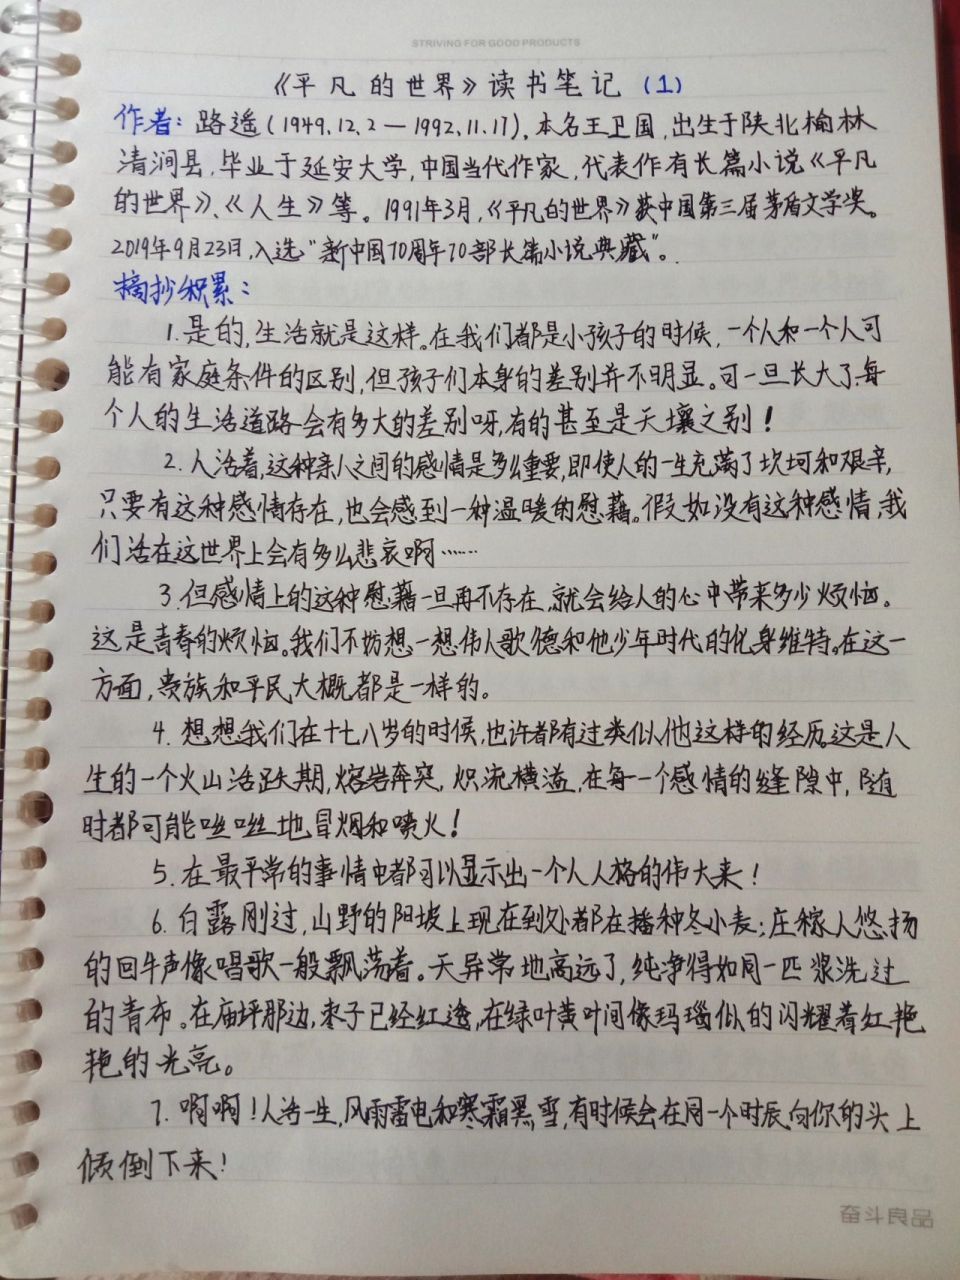 STRIVING FOR GOOD PRODUCTS
《平凡的世界》读书笔记（1）
作者：路遥（1949.12.2—1992.11.17），本名王卫国，出生于陕北榆林
清涧县，毕业于延安大学，中国当代作家，代表作有长篇小说《平凡
的世界》、《人生》等。1991年3月，《平凡的世界》获中国第三届茅盾文学奖。
2019年9月23日，入选“新中国70周年70部长篇小说典藏”。
摘抄积累：
1.是的，生活就是这样。在我们都是小孩子的时候，一个人和一个人可
能有家庭条件的区别，但孩子们本身的差别并不明显。可一旦长大了，每
个人的生活道路会有多大的差别呀，有的甚至是天壤之别！
2.人活着，这种亲人之间的感情是多么重要，即使人的一生充满了坎坷和艰辛，
只要有这种感情存在，也会感到一种温暖的慰藉。假如没有这种感情，我
们活在这世界上会有多么悲哀啊……
3.但感情上的这种慰藉一旦再不存在，就会给人的心中带来多少烦恼。
这是青春的烦恼。我们不妨想一想伟人歌德和他少年时代的化身维特。在这一
方面，贵族和平民大概都是一样的。
4.想想我们在十七八岁的时候，也许都有过类似他这样的经历。这是人
生的一个火山活跃期，熔岩奔突，炽流横溢，在每一个感情的缝隙中，随
时都可能咝咝地冒烟和喷火！
5.在最平常的事情中都可以显示出一个人人格的伟大来！
6.白露刚过，山野的阳坡上现在到处都在播种冬小麦；庄稼人悠扬
的回牛声像唱歌一般飘荡着。天异常地高远了，纯净得如同一匹浆洗过
的青布。在庙坪那边，枣子已经红透，在绿叶黄叶间像玛瑙似的闪耀着红艳
艳的光亮。
7.啊啊！人活一生，风雨雷电和寒霜黑雪，有时候会在同一个时辰向你的头上
倾倒下来！
奋斗良品